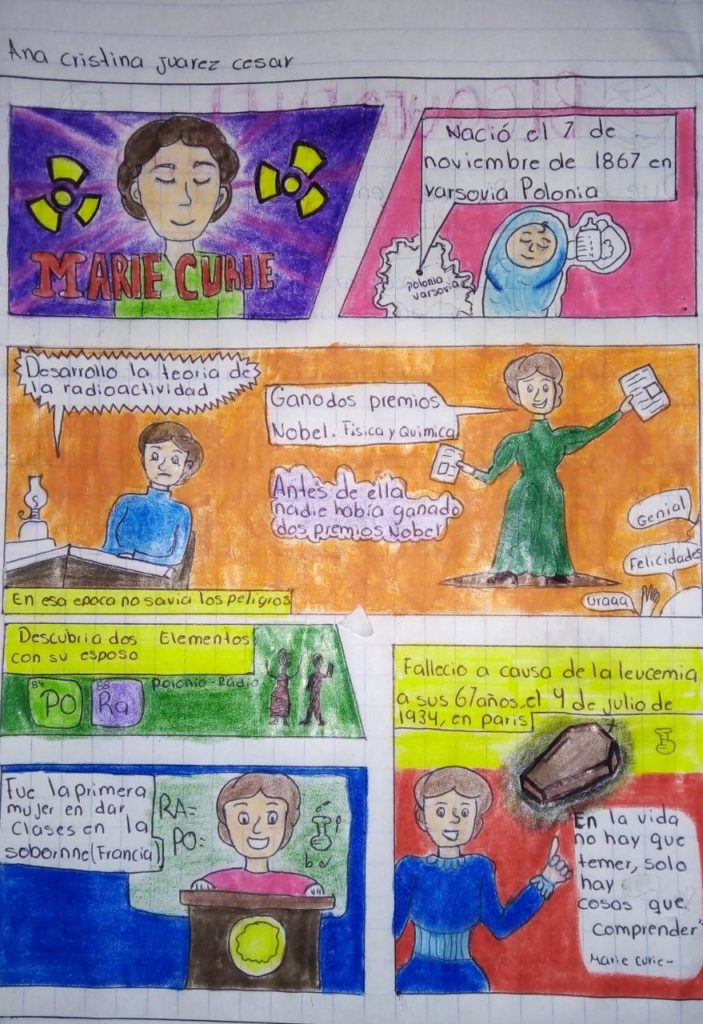 Ana cristina juarez cesar
MARIE CURIE
Nació el 7 de
noviembre de 1867 en
varsovia Polonia
Polonia
varsovia
Desarrollo la teoria de
la radioactividad
Gano dos premios
Nobel. Fisica y Quimica
Antes de ella
nadie habia ganado
dos premios Nobel
Genial
Felicidades
uraaa
En esa epoca no savia los peligros
Descubrio dos Elementos
con su esposo
Polonio-Radio
84
PO
88
Ra
Fallecio a causa de la leucemia
a sus 67 años, el 4 de julio de
1934, en paris
Fue la primera
mujer en dar
clases en la
sobornne (Francia)
RA=
PO=
En la vida
no hay que
temer, solo
hay
cosas que
comprender"
Marie Curie-